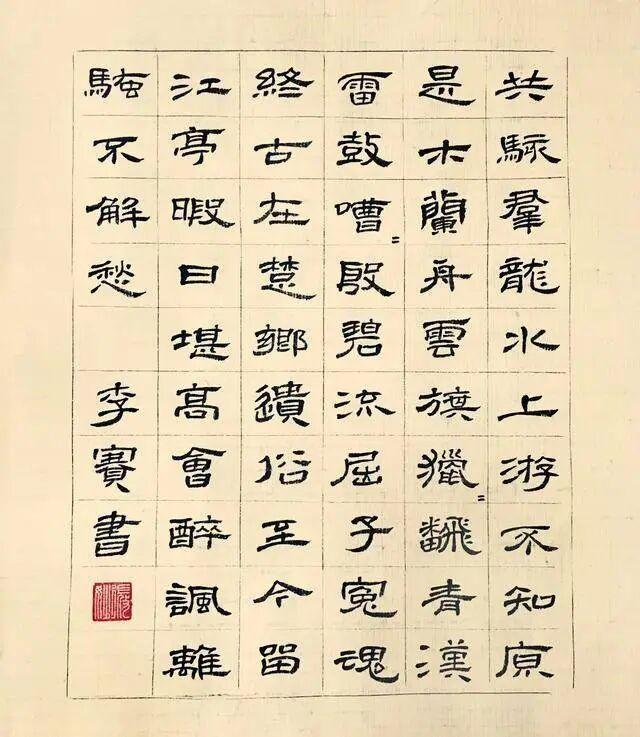 共駭羣龍水上游不知原
是木蘭舟雲旗獵=飜青漢
雷鼓嘈=殷碧流屈子冤魂
終古在楚鄉遺俗至今留
江亭暇日堪高會醉諷離
騷不解愁 李賽書